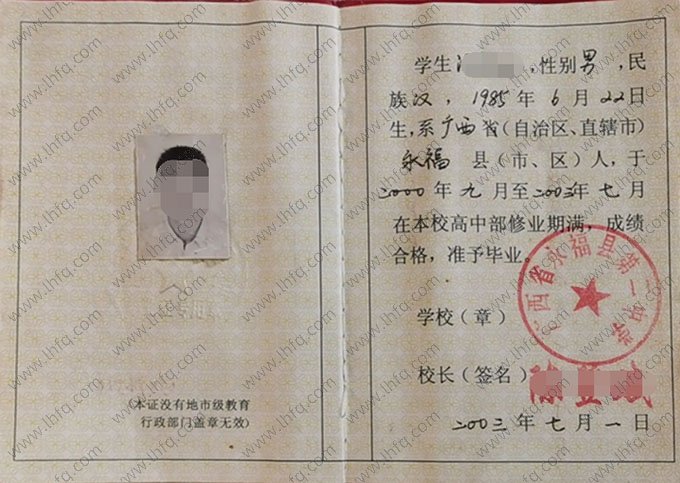 (本证没有地市级教育
行政部门盖章无效)
学生 ,性别男,民
族汉,1985年6月22日
生,系广西省(自治区、直辖市)
永福县(市、区)人,于
二000年九月至二00三年七月
在本校高中部修业期满,成绩
合格,准予毕业。
学校(章)
广西省永福县第一中学
校长(签名)
二00三年七月一日
www.lhfq.com